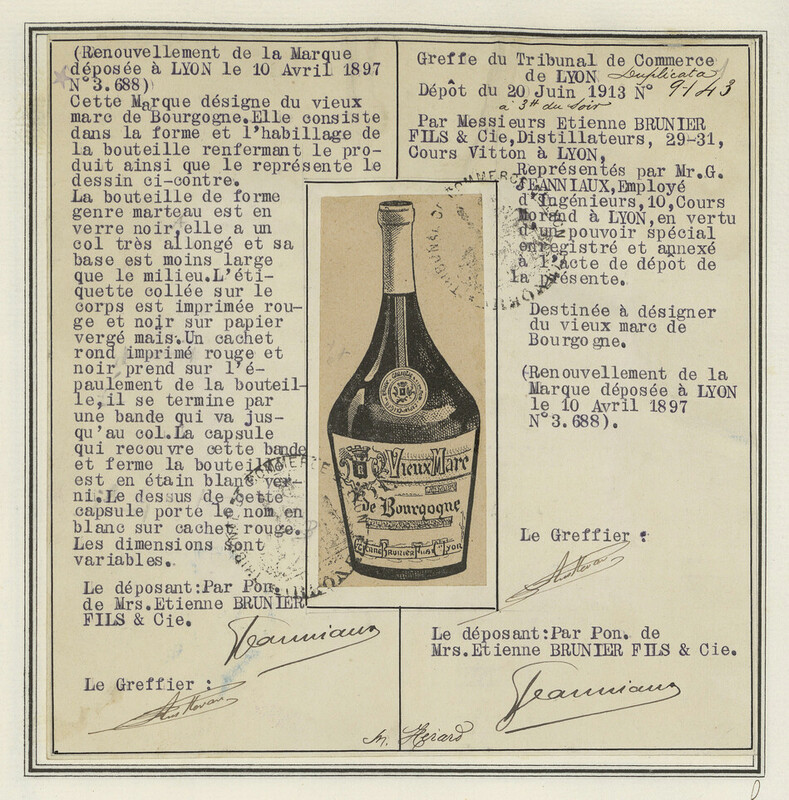 (Renouvellement de la Marque
déposée à LYON le 10 Avril 1897
N°3.688)
Cette Marque désigne du vieux
marc de Bourgogne.Elle consiste
dans la forme et l'habillage de
la bouteille renfermant le pro-
duit ainsi que le représente le
dessin ci-contre.
La bouteille de forme
genre marteau est en
verre noir,elle a un
col très allongé et sa
base est moins large
que le milieu.L'éti-
quette collée sur le
corps est imprimée rou-
ge et noir sur papier
vergé mais.Un cachet
rond imprimé rouge et
noir prend sur l'é-
paulement de la bouteil-
le,il se termine par
une bande qui va jus-
qu'au col.La capsule
qui recouvre cette bande
et ferme la bouteille
est en étain blanc ver-
ni.Le dessus de cette
capsule porte le nom en
blanc sur cachet rouge.
Les dimensions sont
variables.
Le déposant:Par Pon.
de Mrs.Etienne BRUNIER
FILS & Cie.
Jeanniaux
Le Greffier :
Vieux Marc
de Bourgogne
Etienne Brunier Fils & Cie Lyon
Greffe du Tribunal de Commerce
de LYON Duplicata
Dépôt du 20 Juin 1913 N° 9143
à 3H du soir
Par Messieurs Etienne BRUNIER
FILS & Cie,Distillateurs, 29-31,
Cours Vitton à LYON,
Représentés par Mr.G.
JEANNIAUX,Employé
d'Ingénieurs,10,Cours
Morand à LYON,en vertu
d'un pouvoir spécial
enregistré et annexé
à l'acte de dépôt de
la présente.
Destinée à désigner
du vieux marc de
Bourgogne.
(Renouvellement de la
Marque déposée à LYON
le 10 Avril 1897
N°3.688).
Le Greffier :
Le déposant:Par Pon. de
Mrs.Etienne BRUNIER FILS & Cie.
Jeanniaux
TRIBUNAL DE COMMERCE